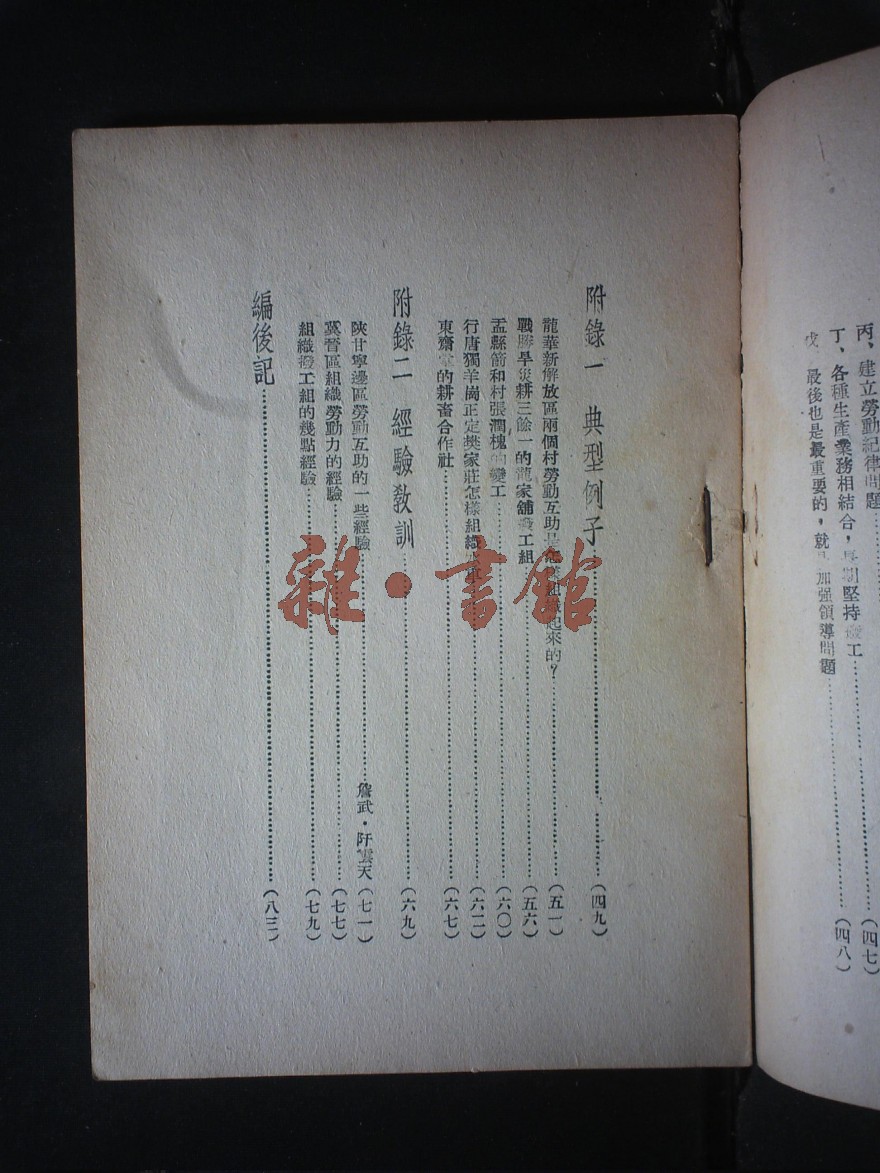 丙、建立勞動紀律問題……(四七)
丁、各種生產業務相結合，長期堅持撥工……(四八)
戊、最後也是最重要的，就 加强領導問題
附錄一 典型例子……(四九)
龍華新解放區兩個村勞動互助是怎樣組織起來的？……(五一)
戰勝旱災耕三餘一的龍家舖撥工組……(五六)
盂縣箭和村張潤槐的變工……(六〇)
行唐獨羊崗正定樊家莊怎樣組織……(六二)
東齋堂的耕畜合作社……(六七)
附錄二 經驗教訓……(六九)
陝甘寧邊區勞動互助的一些經驗……詹武·阡雲天(七一)
冀晉區組織勞動力的經驗……(七七)
組織撥工組的幾點經驗……(七九)
編後記……(八三)
雜·書館